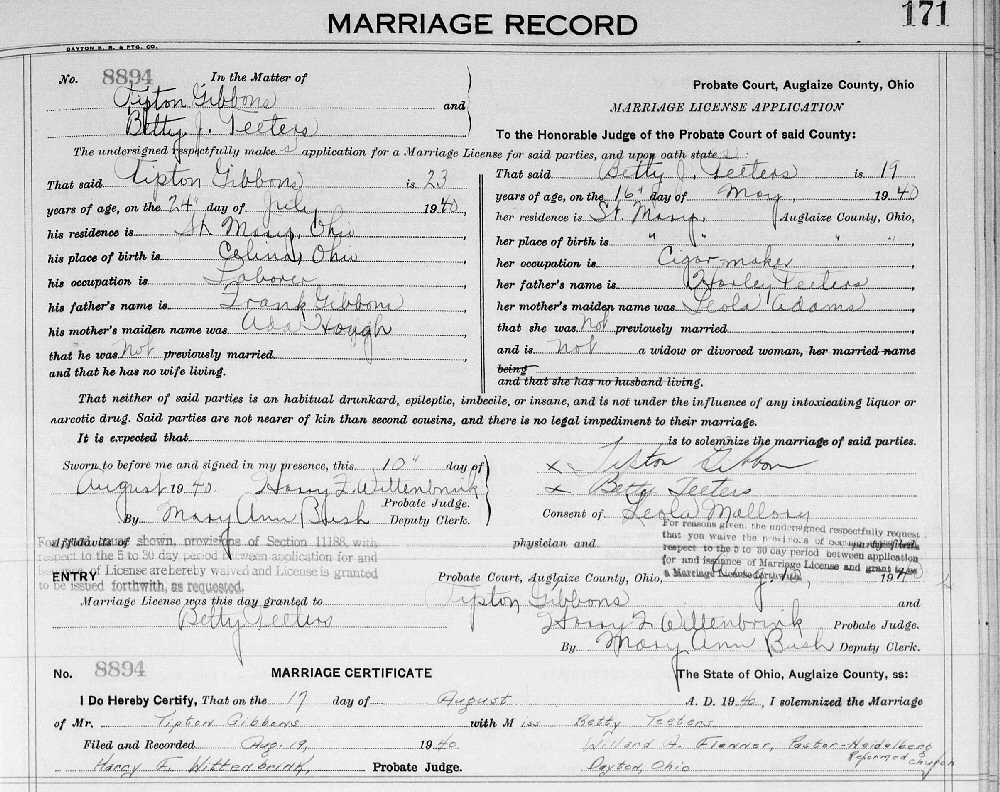 171
MARRIAGE RECORD
DAYTON B. B. & PTG. CO.
No. 8894 In the Matter of
Tipton Gibbons and
Betty J. Teeters
Probate Court, Auglaize County, Ohio
MARRIAGE LICENSE APPLICATION
To the Honorable Judge of the Probate Court of said County:
The undersigned respectfully makes application for a Marriage License for said parties, and upon oath states:
That said Tipton Gibbons is 23
years of age, on the 24" day of July 1940,
his residence is St. Marys, Ohio,
his place of birth is Celina, Ohio,
his occupation is Laborer,
his father's name is Frank Gibbons,
his mother's maiden name was Ada Hough,
that he was Not previously married,
and that he has no wife living.
That said Betty J. Teeters is 19
years of age, on the 16" day of May, 1940
her residence is St. Marys, Auglaize County, Ohio,
her place of birth is " " " ",
her occupation is Cigar maker,
her father's name is Harley Teeters,
her mother's maiden name was Leola Adams
that she was Not previously married,
and is Not a widow or divorced woman, her married name
being
and that she has no husband living.
That neither of said parties is an habitual drunkard, epileptic, imbecile, or insane, and is not under the influence of any intoxicating liquor or
narcotic drug. Said parties are not nearer of kin than second cousins, and there is no legal impediment to their marriage.
It is expected that is to solemnize the marriage of said parties.
Sworn to before me and signed in my presence, this 10" day of
August 1940. Harry F. Wittenbrink
Probate Judge.
By Mary Ann Bush Deputy Clerk.
x Tipton Gibbon
x Betty Teeters
Consent of Leola Mallory
Affidavits of physician and parties filed.
For good cause shown, provisions of Section 11188, with
respect to the 5 to 30 day period between application for and
issuance of License are hereby waived and License is granted
to be issued forthwith, as requested.
For reasons given, the undersigned respectfully request
that you waive the provisions of Section
respect to the 5 to 30 day period between application
for and issuance of Marriage License and grant to be
a Marriage License forthwith
ENTRY Probate Court, Auglaize County, Ohio, Aug. 10, 1940
Marriage License was this day granted to Tipton Gibbons and
Betty Teeters Harry F. Wittenbrink Probate Judge.
By Mary Ann Bush Deputy Clerk.
No. 8894 MARRIAGE CERTIFICATE The State of Ohio, Auglaize County, ss:
I Do Hereby Certify, That on the 17 day of August A. D. 1940, I solemnized the Marriage
of Mr. Tipton Gibbons with Miss Betty Teeters
Filed and Recorded Aug. 19, 1940 Willard A. Flenner, Pastor-Heidelberg
Reformed Church
Harry F. Wittenbrink, Probate Judge. Dayton, Ohio